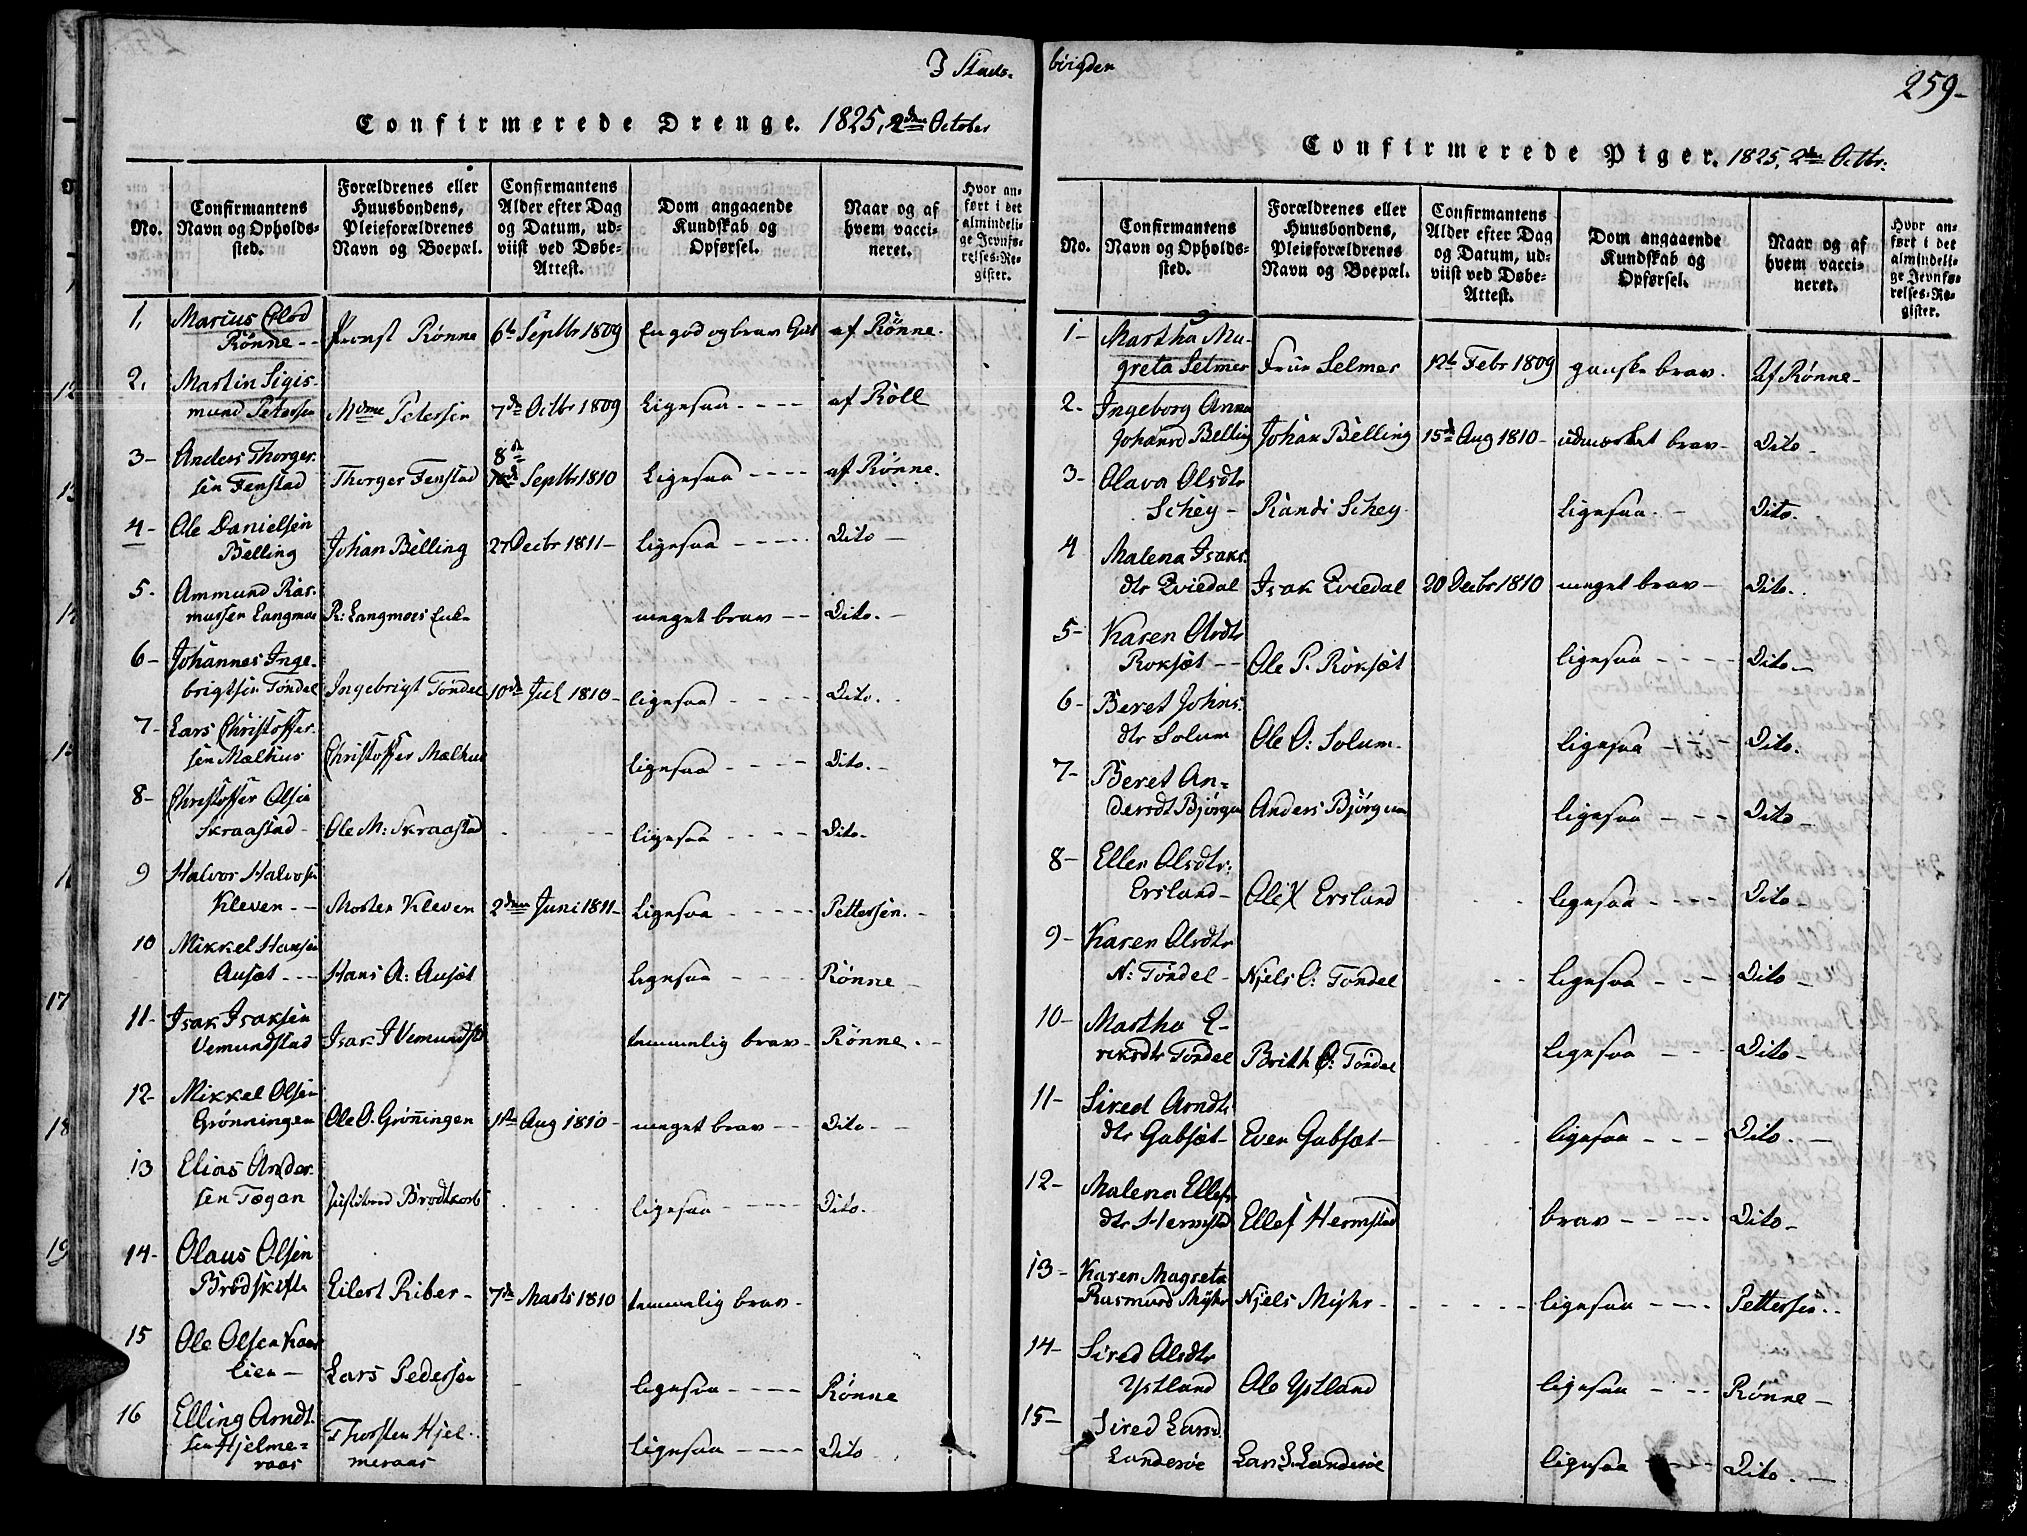 3 Stads-
Confirmerede Drenge. 1825, 2den October
No.
Confirmantens Navn og Opholds-sted.
Forældrenes eller Huusbondens, Pleieforældrenes Navn og Boepæl.
Confirmantens Alder efter Dag og Datum, ud-viist ved Døbe-Attest.
Dom angaaende Kundskab og Opførsel.
Naar og af hvem vacci-neret.
Hvor an-ført i det almindeli-ge Jevnfø-relses-Re-gister.
1, Marcus Rønne -- Provst Rønne 6te Septbr 1809 En god og brav Gut af Rønne.
2, Martin Sigis-
mund Petersen Mdme Petersen 7de Octbr 1809 Ligesaa ---- af Roll
3- Anders Thorger- 8de
sen Fenstad Thorger Fenstad Septbr 1810 Ligesaa ---- af Rønne.
4- Ole Danielsen
Belling Johan Belling 27 Decbr 1811- ligesaa ---- Dito -
5. Ammund Ras-
mussen Langmoe R: Langmoes Enke meget brav -- Dito. -
6- Johannes Inge-
brigtsen Tøndel Ingebrigt Tøndel 10de Jul 1810- ligesaa ---- Dito.
7- Lars Christoffer-
sen Mælhus Christoffer Mælhus ligesaa ---- Dito. -
8- Christoffer Olsen
Skraastad - Ole M: Skraastad ligesaa ---- Dito-
9 Halvor Halvorsen
Kleven -- Morten Kleven 2den Juni 1811- ligesaa ---- Pettersen. -
10 Mikkel Hansen
Ausæt --- Hans A: Ausæt ligesaa ---- Rønne -
11- Isak Isaksen
Vemundstad Isak I Vemundstad temmelig brav- Rønne. -
12- Mikkel Olsen
Grønningen Ole O. Grønningen 1ste Aug 1810- meget brav -- Dito- -
13 Elias Ander-
sen Tøgan Brodtkorb ligesaa ---- Dito.
14- Olaus Olsen
Brødskift Eilert Riber- 7de Marts 1810 temmelig brav-
15 Ole Olsen
lien - Lars Pedersen ligesaa ---- Rønne
16 Elling Arndt-
sen Hjelme-
raas Thorsten Hjel-
meraas ligesaa ---- Dito
bøigden
259-
Confirmerede Piger. 1825, 2den Octbr.
No.
Confirmantens Navn og Opholds-sted.
Forældrenes eller Huusbondens, Pleieforældrenes Navn og Boepæl.
Confirmantens Alder efter Dag og Datum, ud-viist ved Døbe-Attest.
Dom angaaende Kundskab og Opførsel.
Naar og af hvem vacci-neret.
Hvor an-ført i det almindeli-ge Jevnfø-relses-Re-gister.
1- Martha Ma-
greta Selmer Frue Selmer 12te Febr 1809 ganske brav. Af Rønne-
2- Ingeborg Anna
Johansd Belling Johan Belling 15de Aug 1810- udmærket brav- Dito-
3- Olava Olsdtr
Schey- Randi Schey. ligesaa. - Dito.
4 Malena Isaks-
dtr Eviedal Isak Eviedal 20 Decbr 1810 meget brav- Dito.
5- Karen Olsdtr
Roksæt -- Ole P. Roksæt ligesaa ---- Dito-
6- Beret Johns-
dtr Solum Ole O: Solum- ligesaa - Dito.
7- Beret An-
dersdt Bjørgum Anders Bjørgum ligesaa --- Dito-
8- Ellen Olsdtr:
Ersland- Ole Ersland ligesaa ---- Dito-
9- Karen Olsdtr
N: Tøndel- Njels O: Tøndel ligesaa --- Dito -
10- Martha E-
riksdtr Tøndel Brith O: Tøndel ligesaa --- Dito-
11- Sired Arndt-
dtr Gabsæt- Even Gabsæt- ligesaa --- Dito. -
12- Malena Ellefs-
dtr Hermstad Ellef Hermstad brav ---- Dito-
13- Karen Magreta
Rasmusd Myhr Njels Myhr- ligesaa ---- Pettersen. -
14- Sired Olsdtr
Ystland Ole Ystland ligesaa - -- Rønne-
15- Sired Larsd.
Landerøe Lars L. Landerøe ligesaa Dito. -